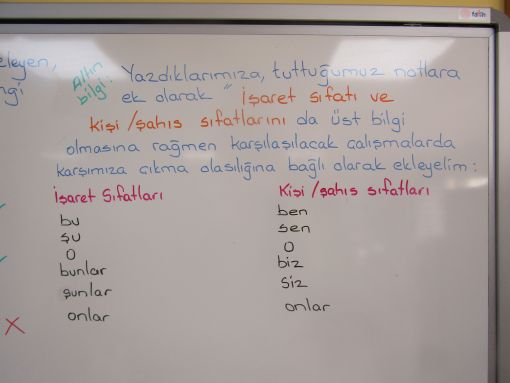 fatih
eleyen,
Altın
bilgi:
Yazdıklarımıza, tuttuğumuz notlara
ek olarak " İşaret sıfatı ve
kişi /şahıs sıfatlarını da üst bilgi
olmasına rağmen karşılaşılacak çalışmalarda
karşımıza çıkma olasılığına bağlı olarak ekleyelim:
İşaret Sıfatları
bu
şu
O
bunlar
şunlar
onlar
Kişi /şahıs sıfatları
ben
sen
O
biz
siz
onlar